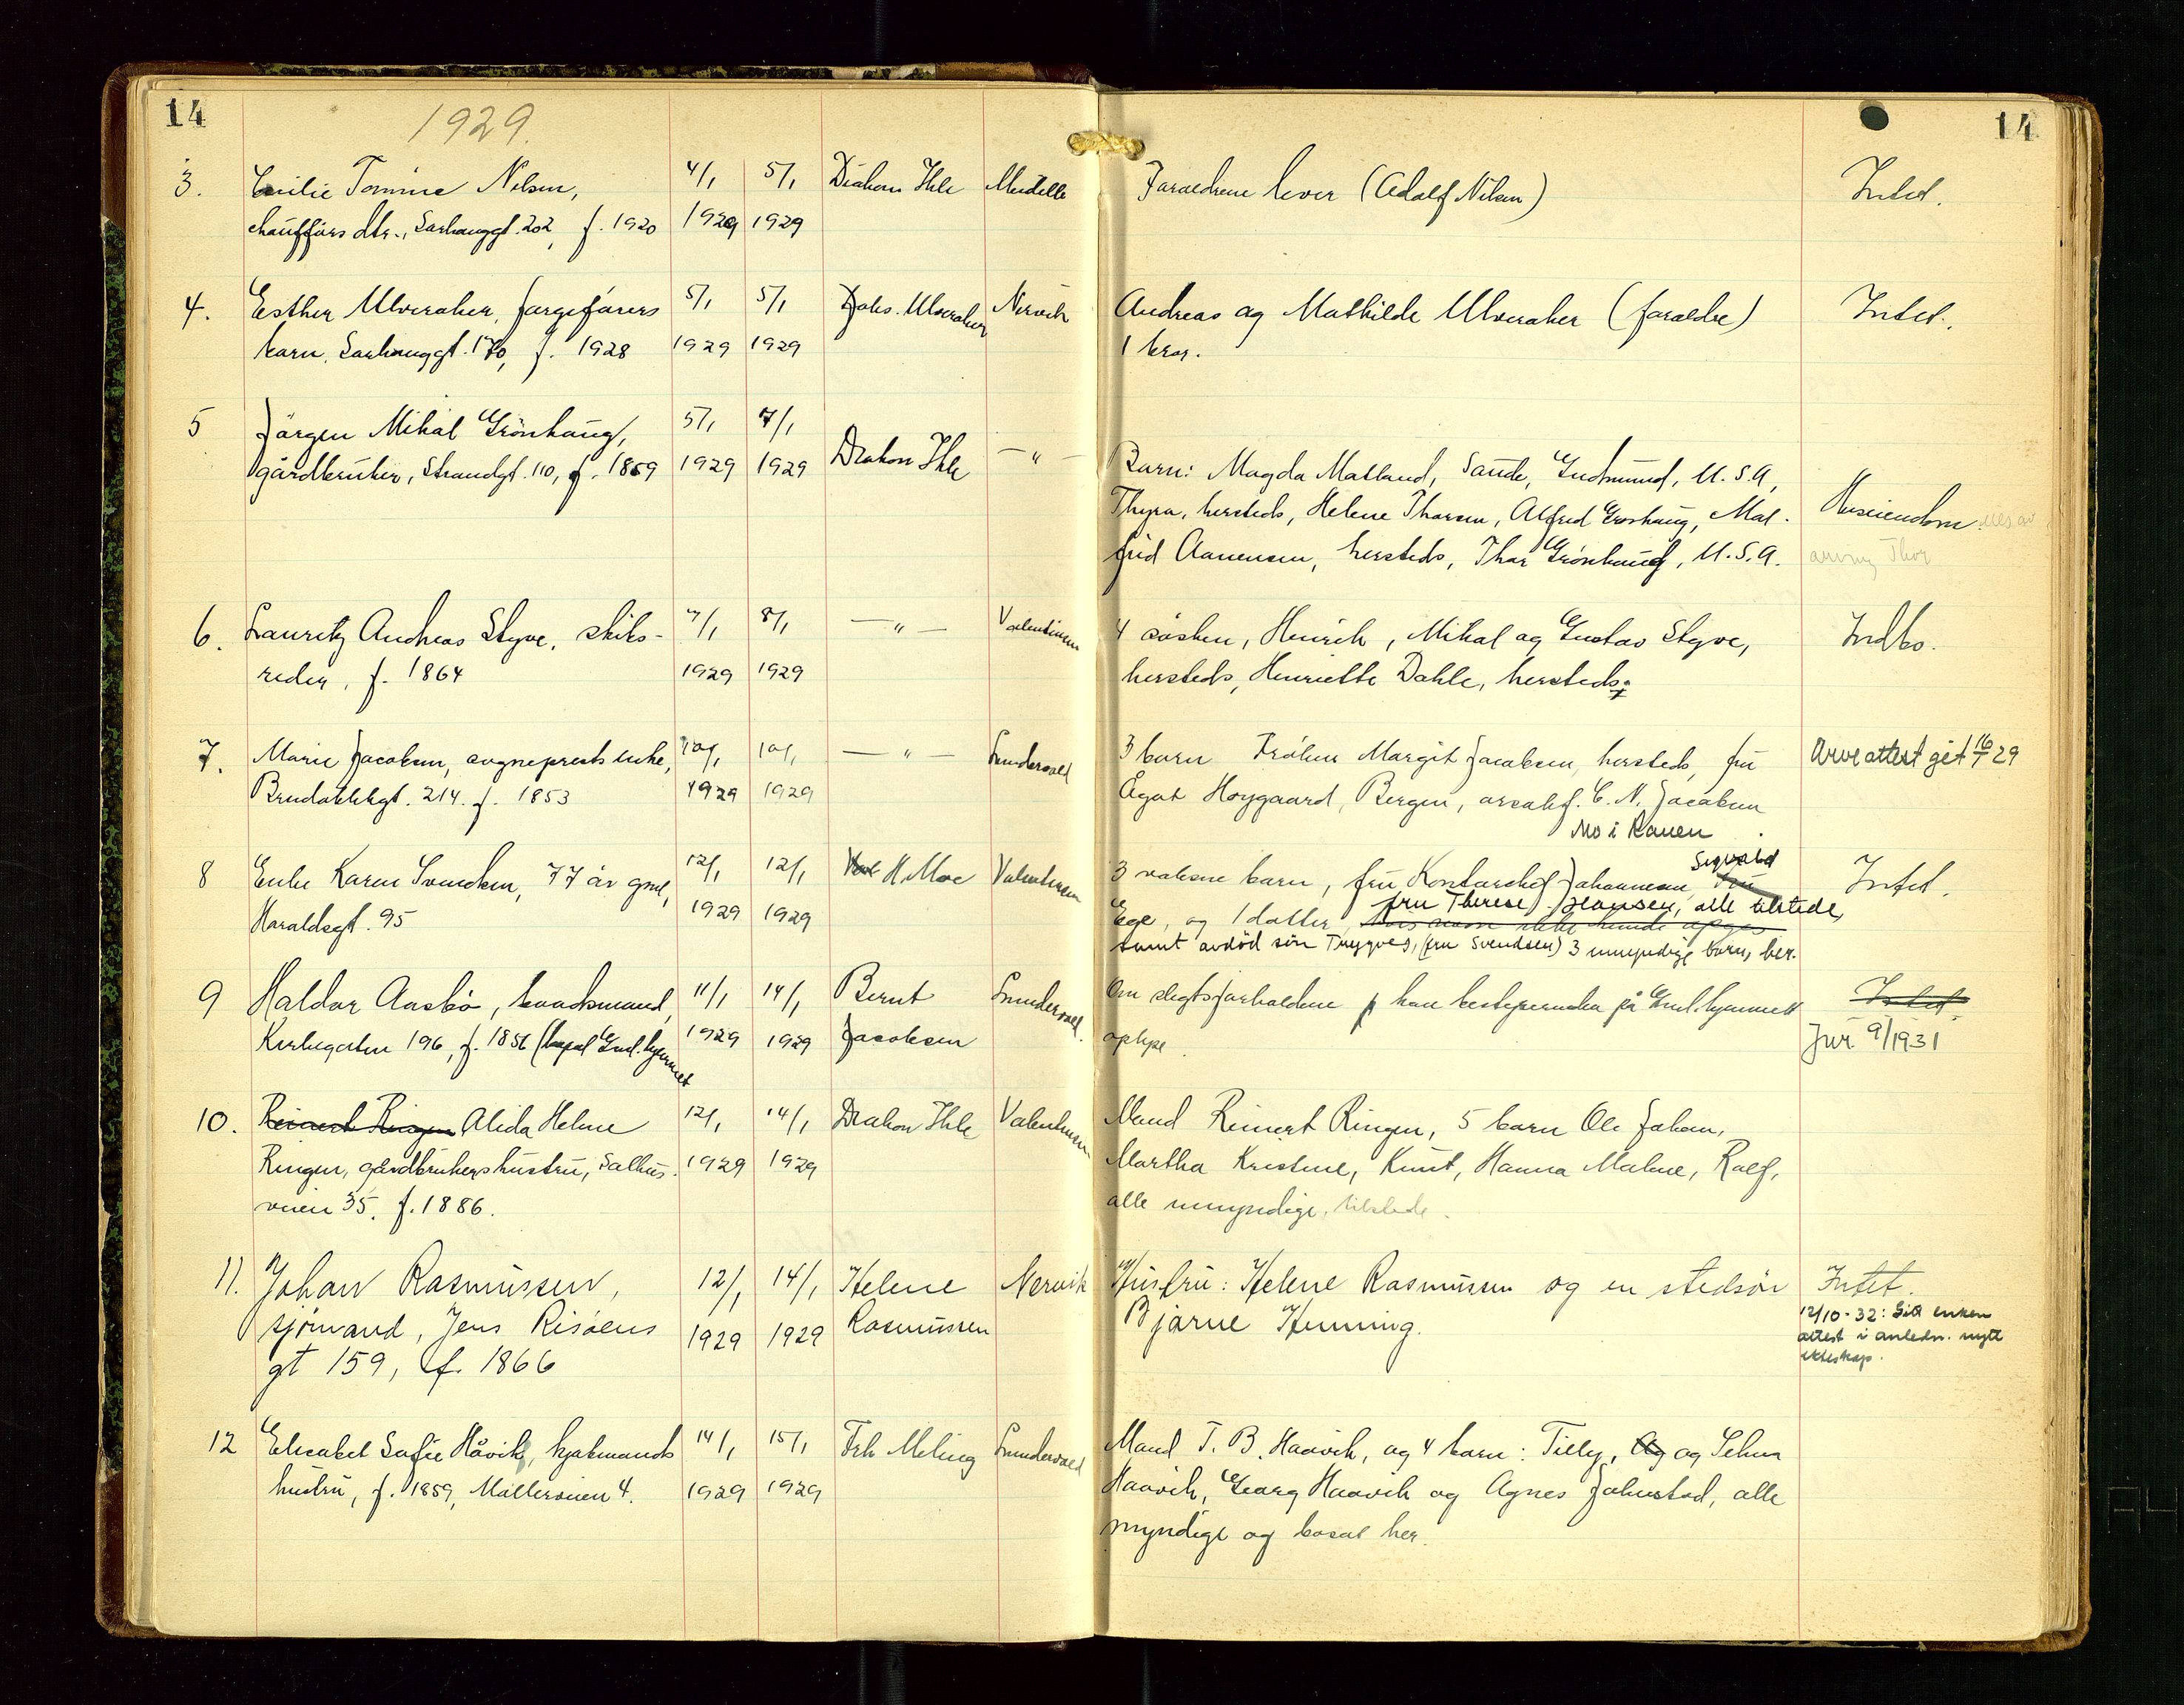 14
1929.
14
3. Emilie Tomine Nilsen, 4/1 5/1 Diakon Ihle Meidell Foraeldrene lever (Adolf Nilsen) Intet.
chaufförs dtr., Sørhauggt. 202, f. 1920 1929 1929
4. Esther Ulveraker, færgeförers 5/1 5/1 Johs. Ulveraker Nervik Andreas og Mathilde Ulveraker (foraeldre) Intet.
barn, Sørhauggt. 170, f. 1928 1929 1929 1 bror.
5 Jörgen Mikal Grönhaug, 5/1 7/1
gårdbruker, Strandgt. 110, f. 1859 1929 1929 Diakon Ihle — " — Barn: Magda Matland, Sande, Gudmund, U.S.A,
Thyra, hersteds, Helene Thorsen, Alfred Grønhaug, Mal- Huseiendom
frid Aanensen, hersteds, Thor Grönhaug, U.S.A.
6. Lauritz Andreas Styve, skibs- 7/1 8/1 — " — Valentinsen 4 søsken, Henrik, Mikal og Gustav Styve, Indbo.
reder, f. 1864 1929 1929 hersteds, Henriette Dahle, hersteds.
7. Marie Jacobsen, sogneprests enke, 10/1 10/1 — " — Sundersvold 3 barn Frøken Margit Jacobsen, hersteds, fru Arveattest git 16/1 29
214. f. 1853 1929 1929 Ågat Høygaard, Bergen, C. N. Jacobsen
Mo i Ranen
8 Enke Karen Svendsen, 77 år gml, 12/1 12/1 H. Moe Valentinsen 3 voksne barn, fru Kontorchef Johannesen, Sigvald Intet.
Haraldsgt. 95 1929 1929 Ege, og 1 datter, fru Therese Hansen, alle tilstede,
samt avdöd sön Trygves, (fru Svendsen) 3 umyndige barn, her.
9 Haldor Aasbö, baadsmand, 11/1 14/1 Bernt Sundersvold. Om slegtsforholdene kan bestyrerinden på Gml.hjemmet Intet
Kirkegaten 196, f. 1856 Gml.hjemmet 1929 1929 Jacobsen oplyse. Jvr. 9/1931
10. Reinert Ringen Alida Helene 12/1 14/1 Diakon Ihle Valentinsen Mand Reinert Ringen, 5 barn Ole Johan,
Ringen, gårdbrukers hustru, Salhus- 1929 1929 Martha Kristine, Knut, Hanna Malene, Rolf,
veien 35, f. 1886. alle umyndige, tilstede.
11. Johan Rasmussen, 12/1 14/1 Helene Nervik Hustru: Helene Rasmussen og en stedsön Intet.
sjömand, Jens Risöens 1929 1929 Rasmussen Bjarne Henning. 12/10-32: Git enken
gt 159, f. 1866 attest i anledn. nytt
ekteskap.
12 Elisabet Sofie Håvik, kjøbmands 14/1 15/1 Frk Meling Sundersvold Mand T. B. Haavik, og 4 barn: Tilly, og Selma
hustru, f. 1859, Mølleveien 4. 1929 1929 Haavik, Georg Haavik og Agnes Johnstad, alle
myndige og bosat her.